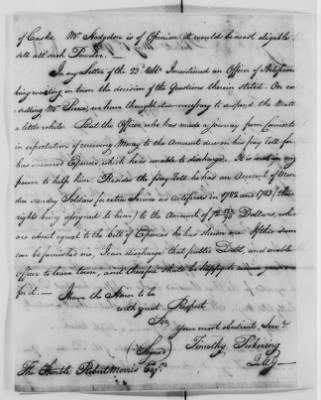 of Casks. Mr Hodgdon is of Opinion it would be most eligible
sell all such Powder.
In my Letter of the 23d. I mentioned an Officer of Artificers
being waiting in town the decision of the Questions therein stated. On
Mr Pierce, we have thought it necessary to suspend the Matter
a little while. But the Officer who has made a journey from Connecticut
in expectation of receiving Money to the Amount due on his pay roll
has incurred Expences which he is unable to discharge. It is not in my
power to help him. Besides the pay Roll he has an Account of Monies
due sundry Soldiers for actual Service as artificers in 1782 and 1783 (the
rights being assigned to him) to the Amount of Dollars, which
are about equal to the bill of Expences he has shewn me. If this sum
can be furnished me, I can discharge that public Debt, and enable
Officer to leave town, and therefore shall be happy to receive your
for it.—
I have the Honor to be
with great Respect
Sir
Your most obedient Servt
(Signed) Timothy Pickering
QMG—
The Honble Robert Morris Esqr.